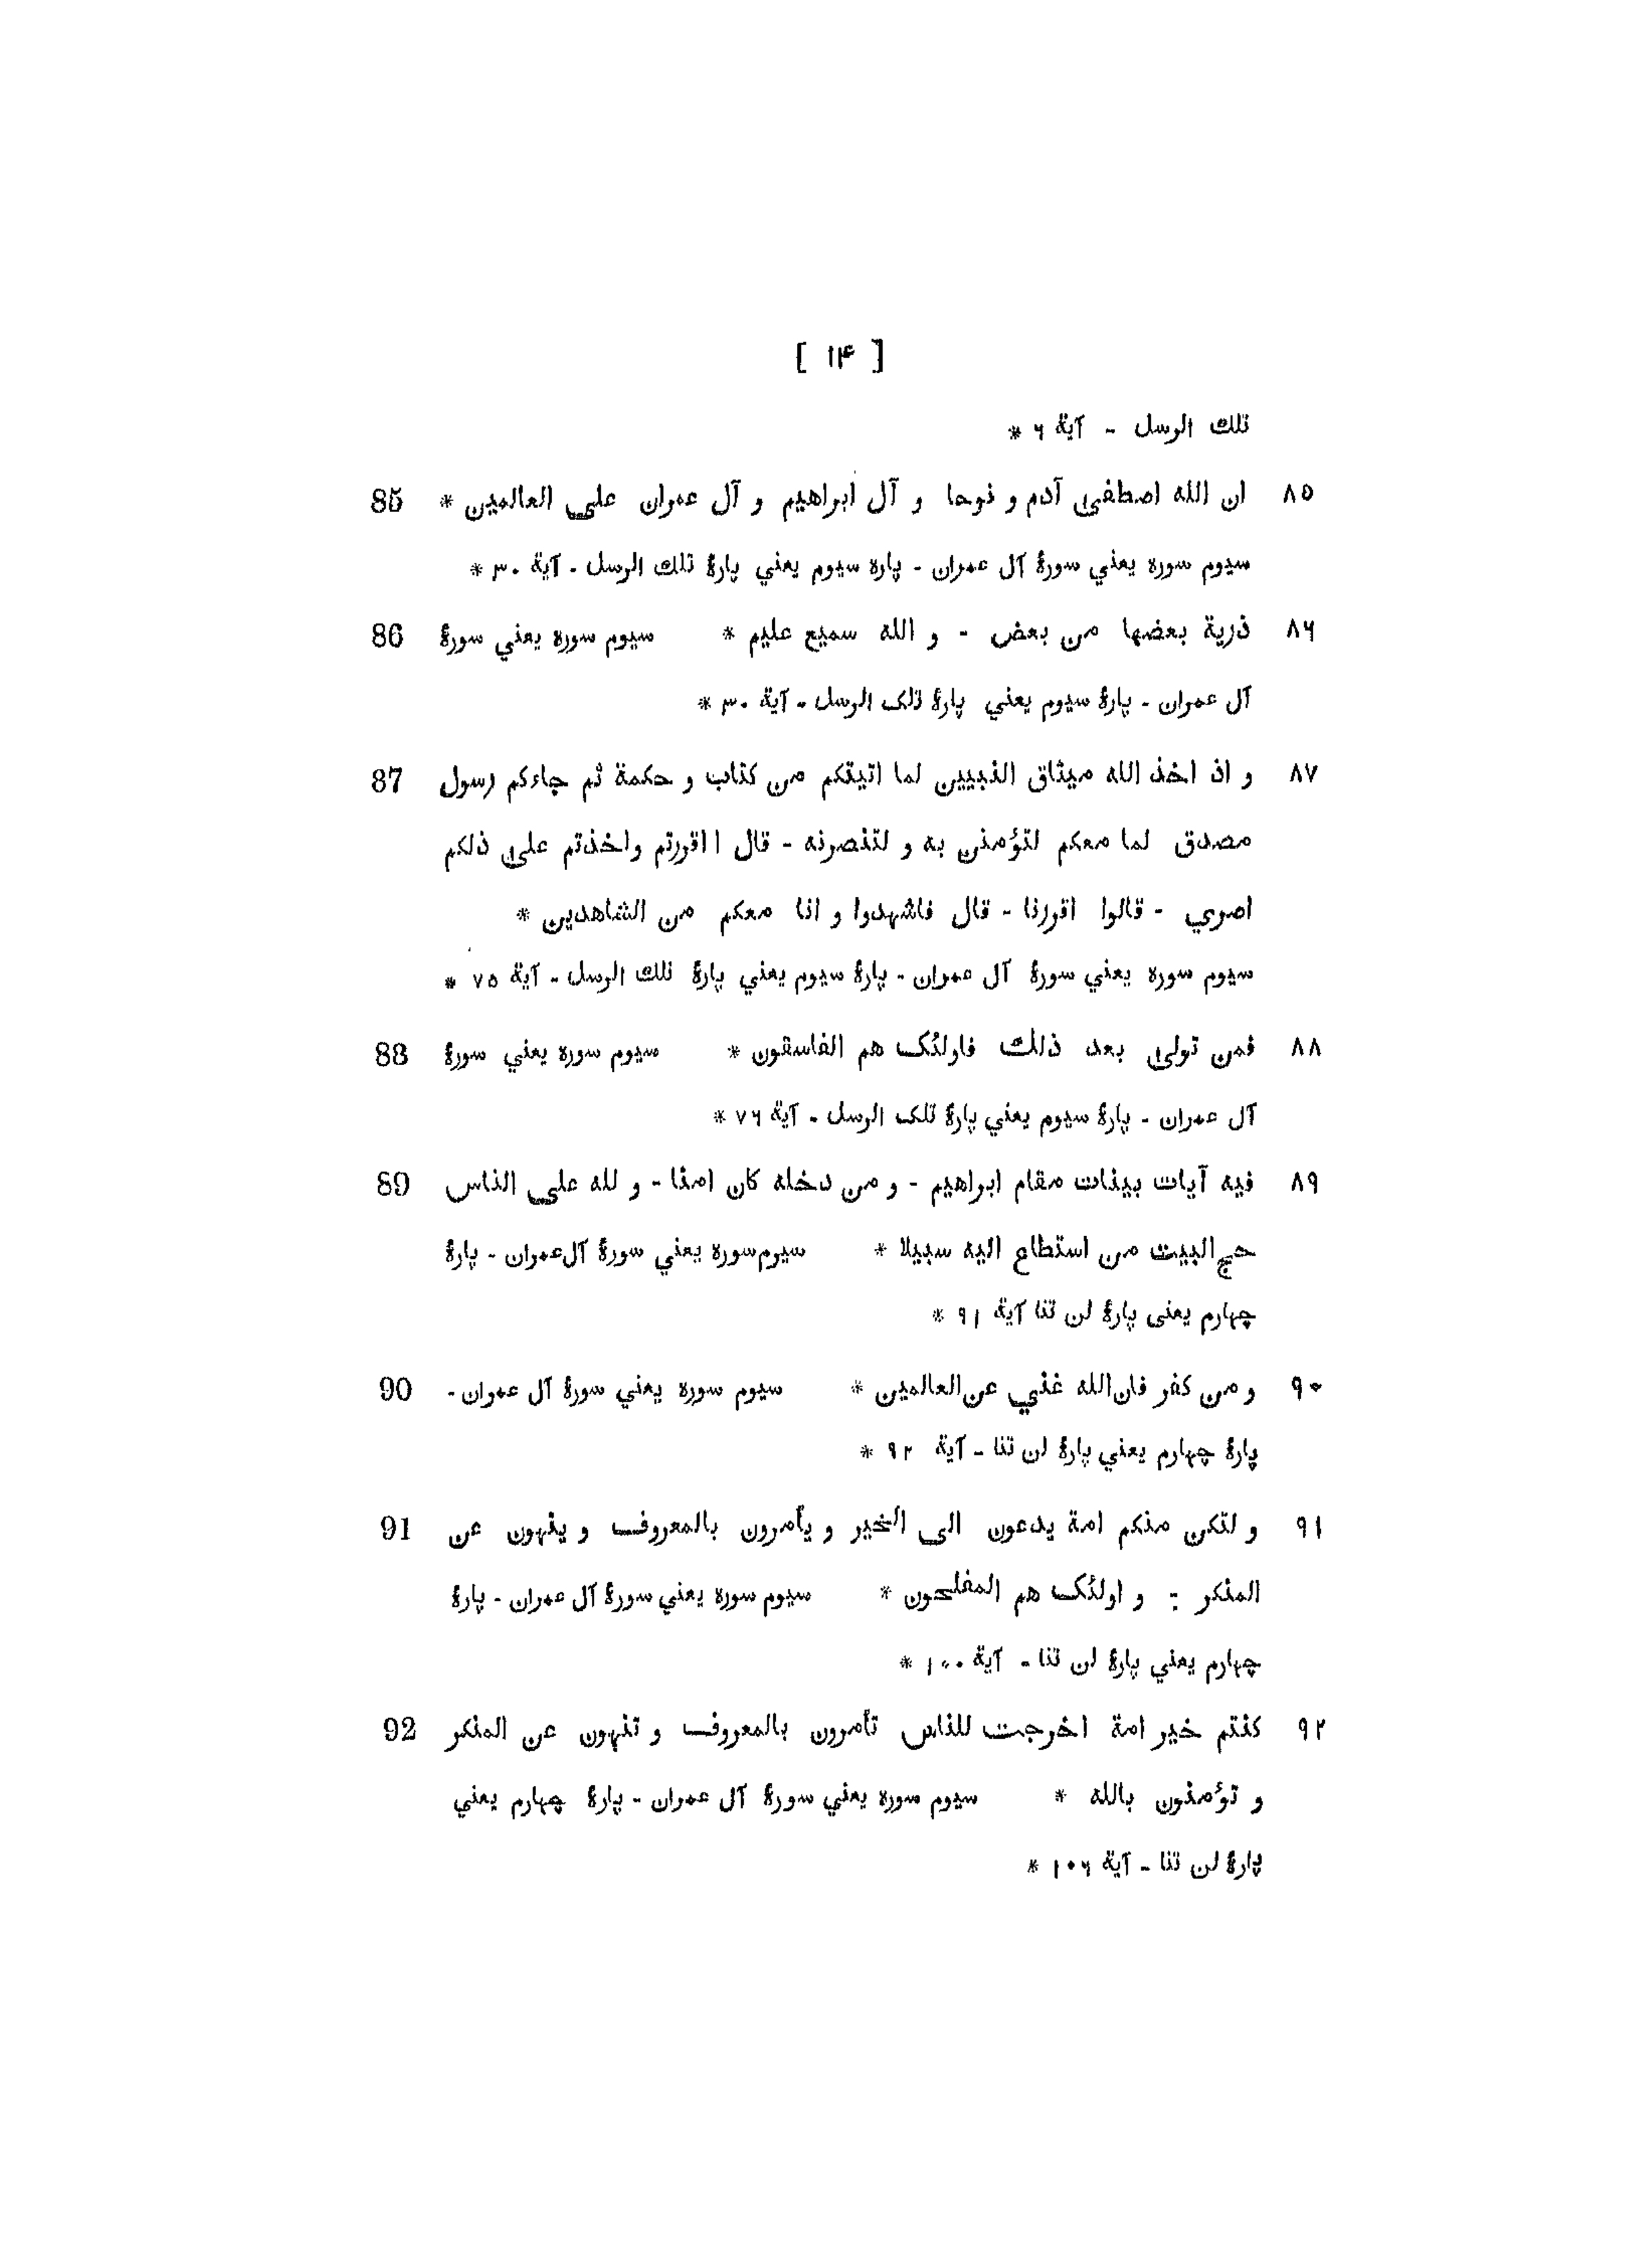 [ ۱۴ ]
تلك الرسل - آية ۶ *
۸۵ ان الله اصطفى آدم و نوحا و آل ابراهيم و آل عمران على العالمين * 85
سيوم سوره يعني سورۀ آل عمران - پاره سيوم يعني پارۀ تلك الرسل - آية ۳۰ *
۸۶ ذرية بعضها من بعض - و الله سميع عليم * سيوم سوره يعني سورۀ 86
آل عمران - پارۀ سيوم يعني پارۀ تلک الرسل - آية ۳۰ *
۸۷ و اذ اخذ الله ميثاق النبيين لما اتيتكم من كتاب و حكمة ثم جاءكم رسول 87
مصدق لما معكم لتؤمنن به و لتنصرنه - قال ا اقررتم واخذتم على ذلكم
اصري - قالوا اقررنا - قال فاشهدوا و انا معكم من الشاهدين *
سيوم سوره يعني سورۀ آل عمران - پارۀ سيوم يعني پارۀ تلك الرسل - آية ۷۵ *
۸۸ فمن تولى بعد ذلك فاولئک هم الفاسقون * سيوم سوره يعني سورۀ 88
آل عمران - پارۀ سيوم يعني پارۀ تلک الرسل - آية ۷۶ *
۸۹ فيه آيات بينات مقام ابراهيم - و من دخله كان امنا - و لله على الناس 89
حج البيت من استطاع اليه سبيلا * سيوم سوره يعني سورۀ آل عمران - پارۀ
چهارم يعنى پارۀ لن تنا آية ۹۱ *
۹۰ و من كفر فان الله غني عن العالمين * سيوم سوره يعني سورۀ آل عمران - 90
پارۀ چهارم يعني پارۀ لن تنا - آية ۹۲ *
۹۱ و لتكن منكم امة يدعون الى الخير و يأمرون بالمعروف و ينهون عن 91
المنكر : و اولئک هم المفلحون * سيوم سوره يعني سورۀ آل عمران - پارۀ
چهارم يعني پارۀ لن تنا - آية ۱۰۰ *
۹۲ كنتم خير امة اخرجت للناس تأمرون بالمعروف و تنهون عن المنكر 92
و تؤمنون بالله * سيوم سوره يعني سورۀ آل عمران - پارۀ چهارم يعني
پارۀ لن تنا - آية ۱۰۶ *